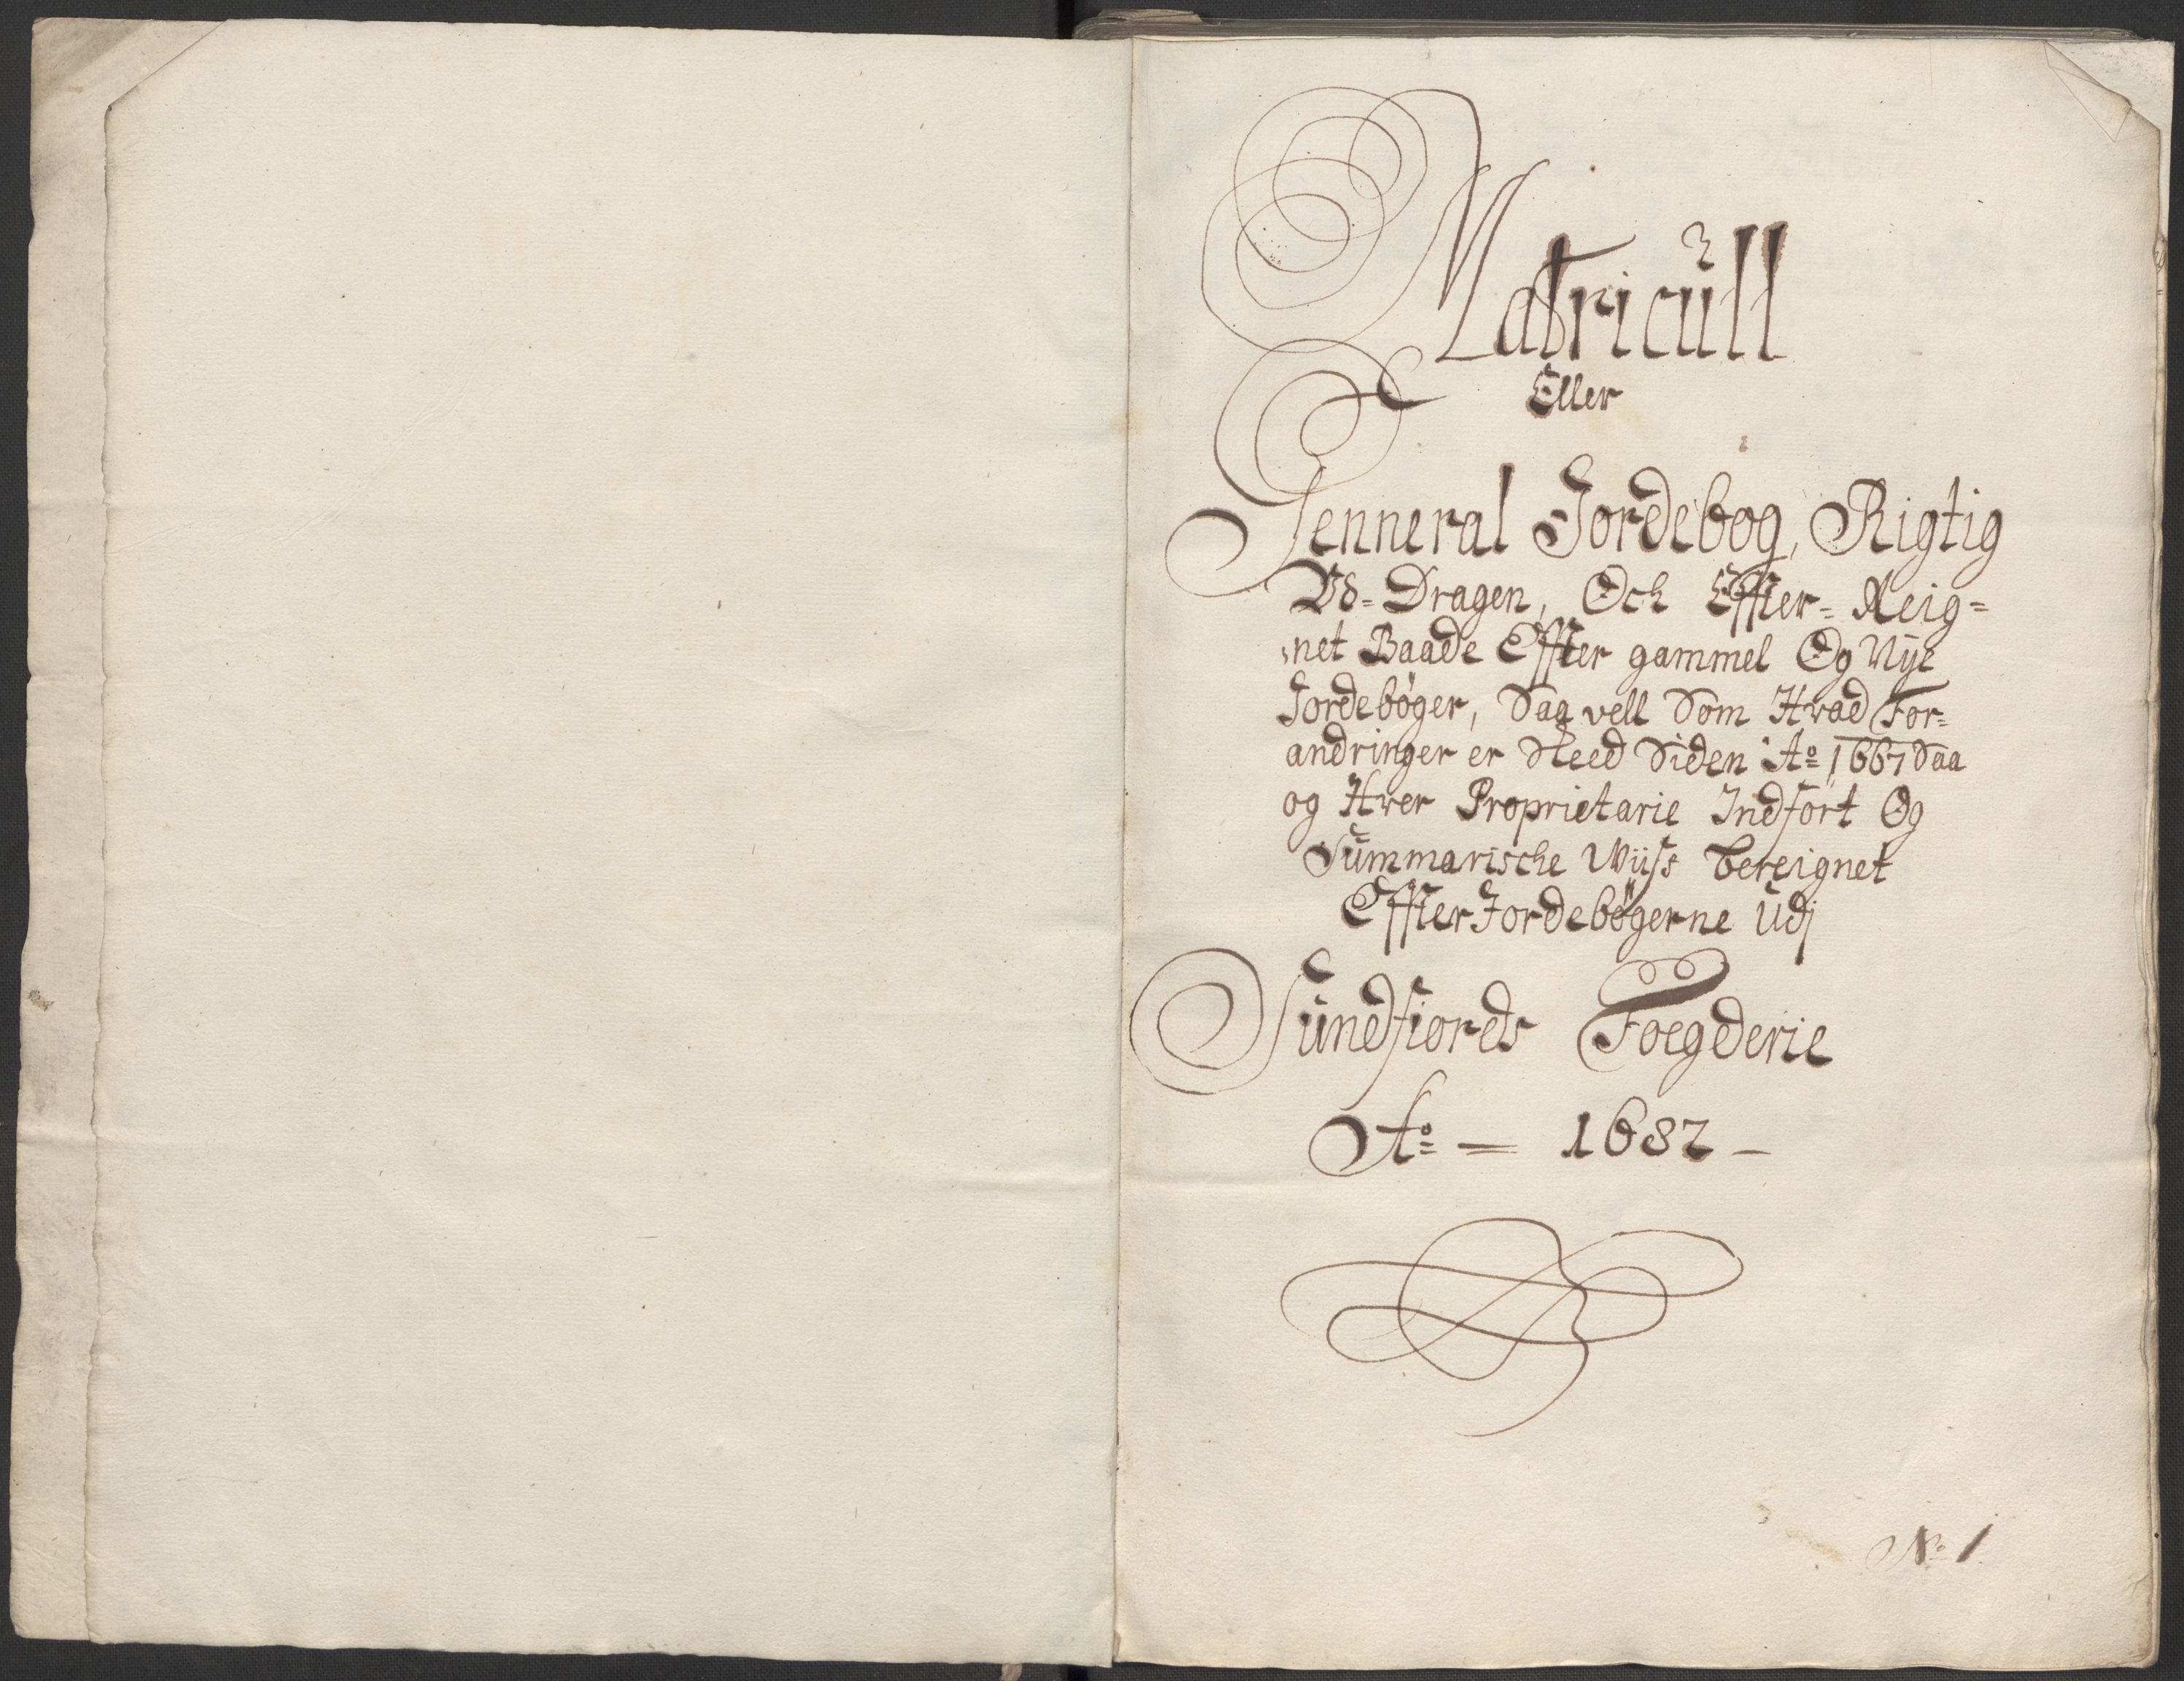 Matricull
Eller
Jenneral Jordebog, Rigtig
Vd-Dragen, Och Effter-Reig=
net Baade Effter gammel Og Nÿe
Jordebøger, Saa vell Som Hvad For=
andringer er Skeed Siden Ao 1667 Saa
og Hver Proprietarie Indfort Og
Summarische Wiiss bereignet
Effter Jordebøgerne Udj
Sundfiords Foegderie
Ao = 1682 –
No 1